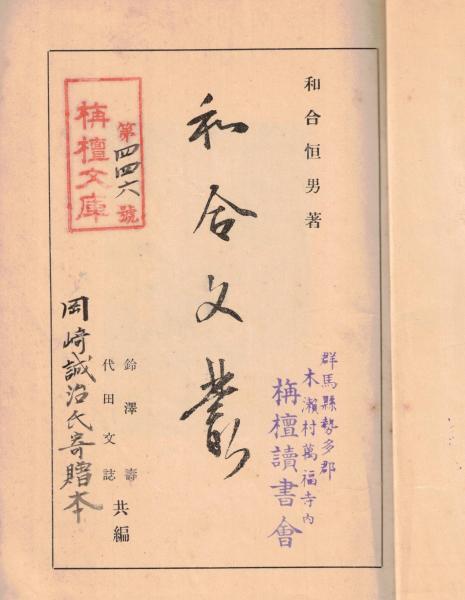 和合恒男著
和合文叢
群馬縣勢多郡
木瀬村萬福寺内
栴檀讀書會
鈴澤壽
代田文誌
共編
栴檀文庫
第四四六號
岡崎誠治氏寄贈本